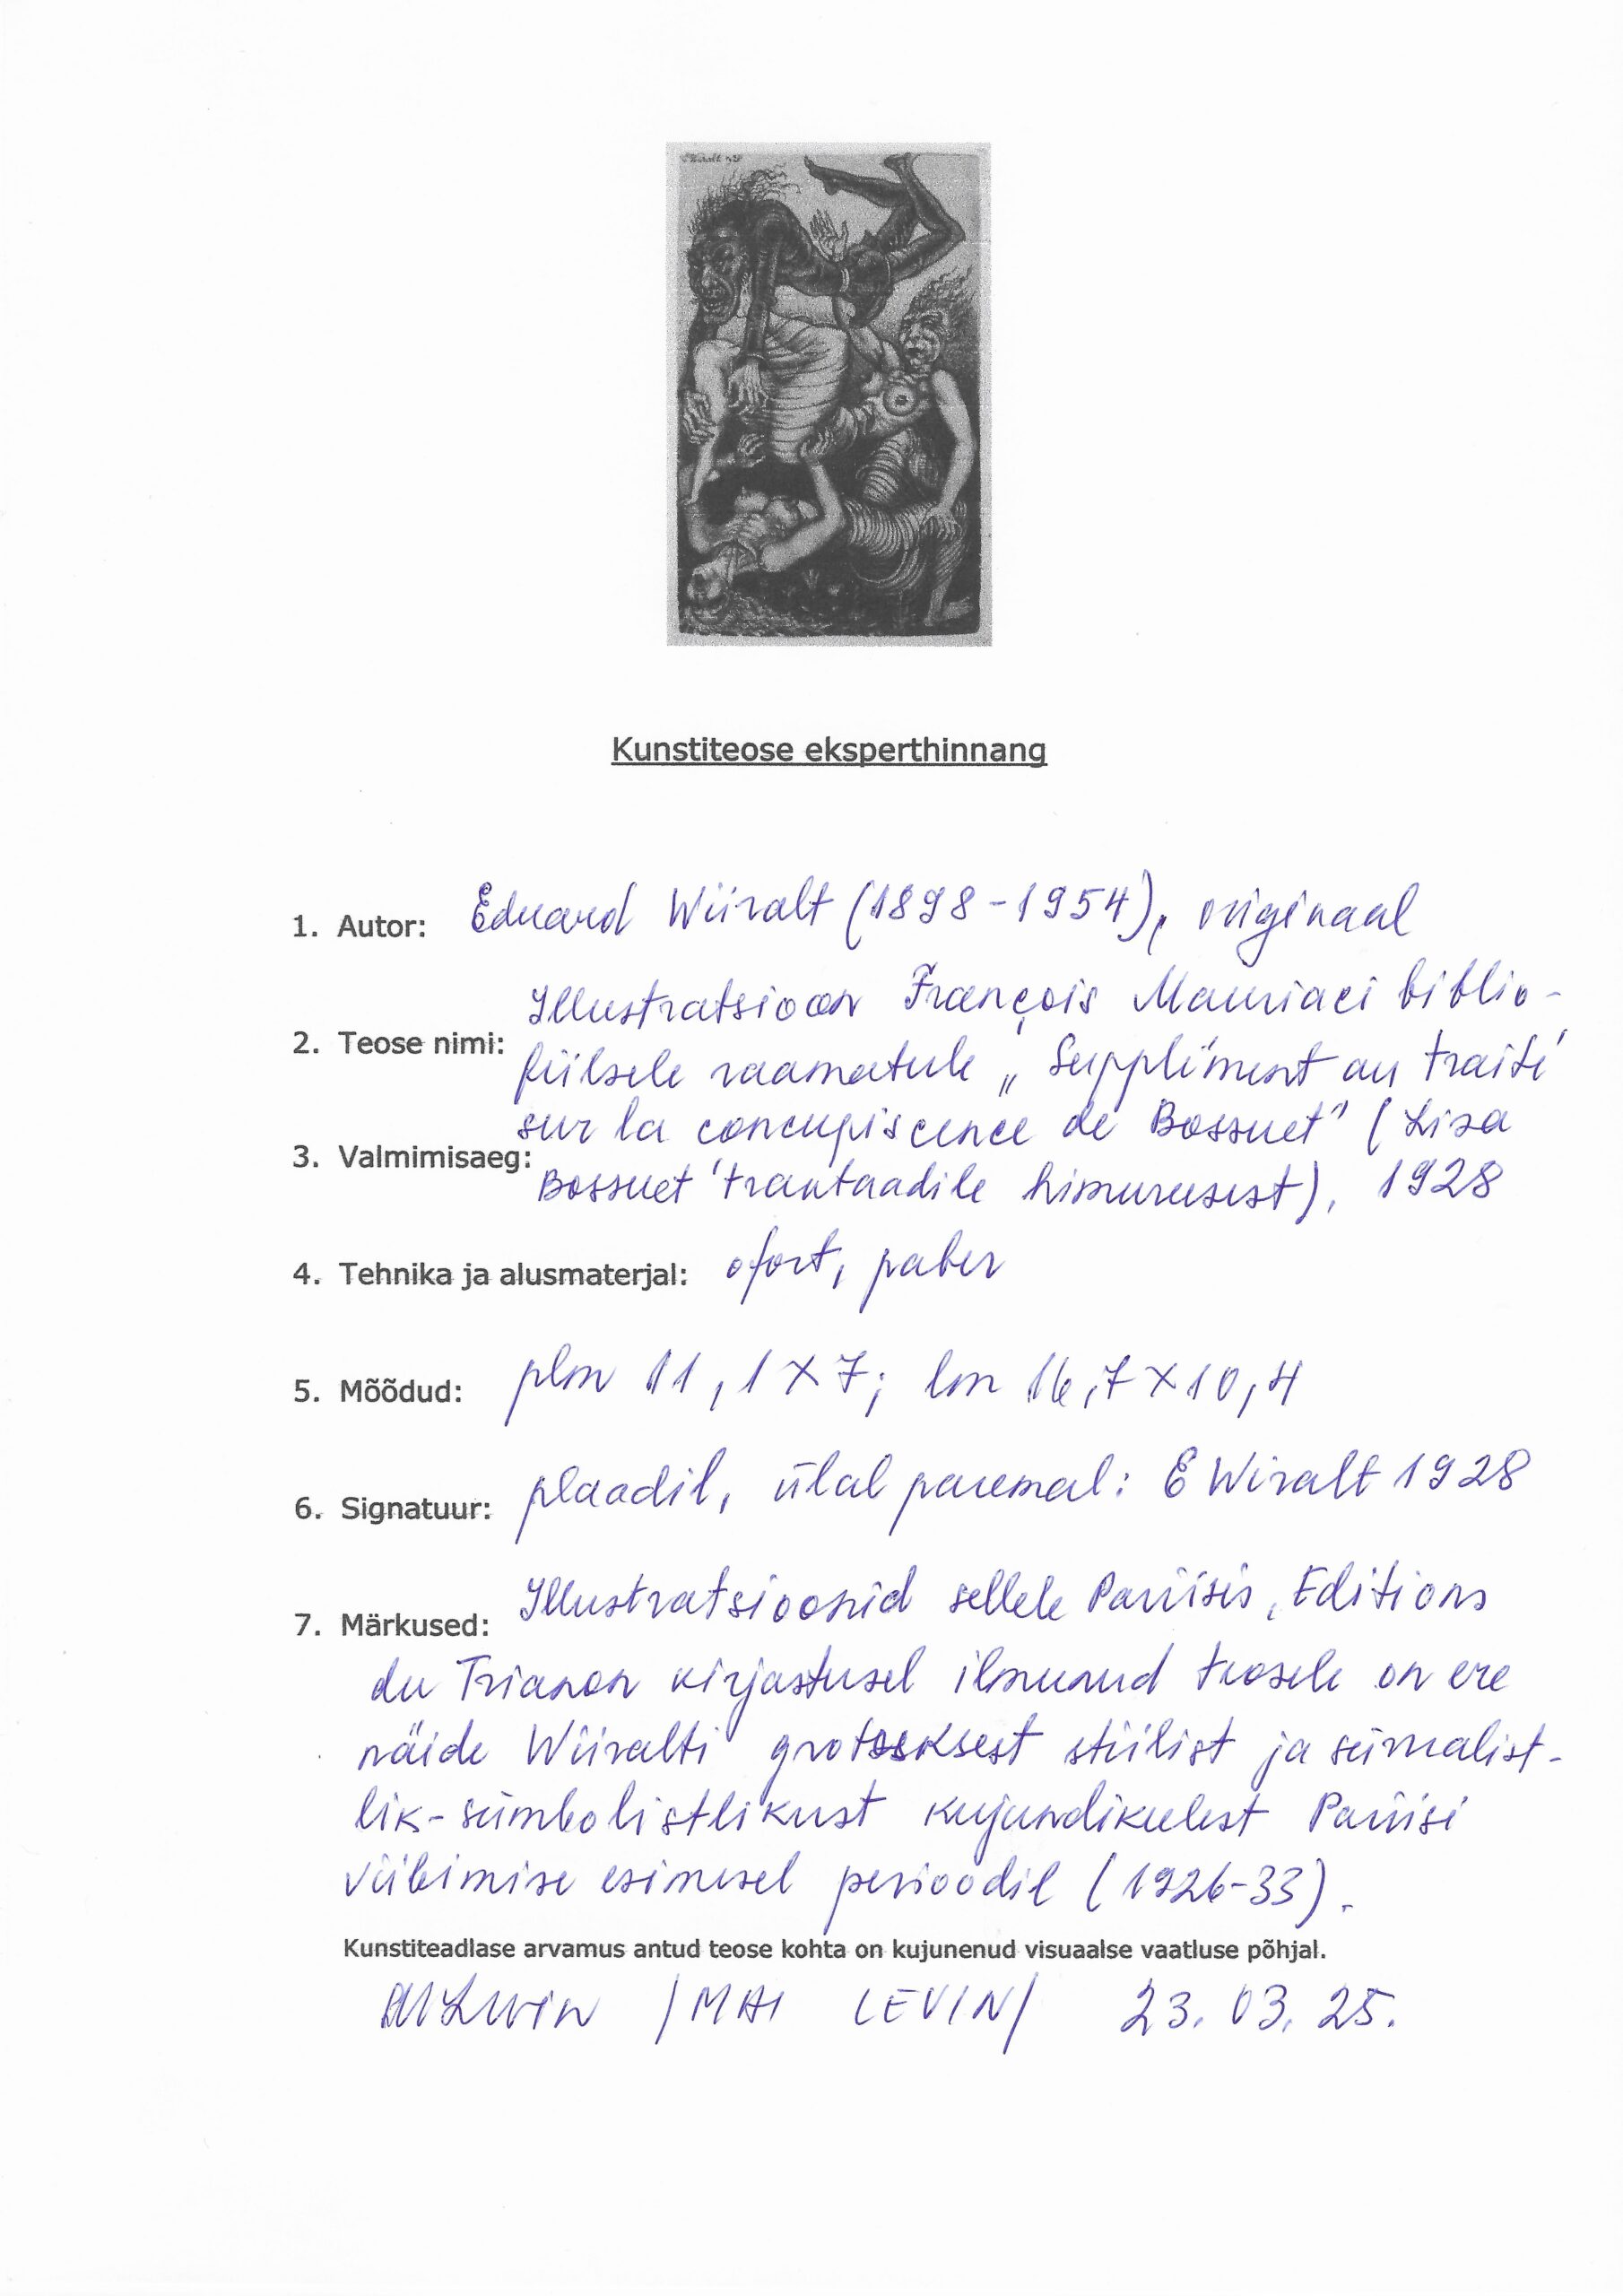 Kunstiteose eksperthinnang
1. Autor: Eduard Wiiralt (1898-1954), originaal
Illustratsioon François Mauriaci biblio-
2. Teose nimi: fiilsele raamatule „Supplément au traité
sur la concupiscence de Bossuet" (Lisa
3. Valmimisaeg: Bossuet' traktaadile himurusest), 1928
4. Tehnika ja alusmaterjal: ofort, paber
5. Mõõdud: plm 11,1 x 7; lm 16,7 x 10,4
6. Signatuur: plaadil, ülal paremal: E Wiralt 1928
7. Märkused: Illustratsioonid sellele Pariisis, Editions
du Trianon kirjastusel ilmunud teosele on ere
näide Wiiralti grotesksest stiilist ja sürrealist-
lik-sümbolistlikust kujundikeelest Pariisi
viibimise esimesel perioodil (1926-33).
Kunstiteadlase arvamus antud teose kohta on kujunenud visuaalse vaatluse põhjal.
MLevin /MAI LEVIN/ 23.03.25.